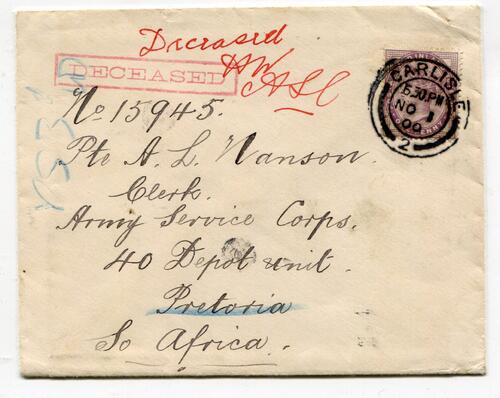 Deceased
DECEASED
HW
ASC
No 15945.
Pte A. L. Nanson.
Clerk.
Army Service Corps.
40 Depot unit.
Pretoria
So Africa.
CARLISLE
5.30 PM
NO 1
00
2